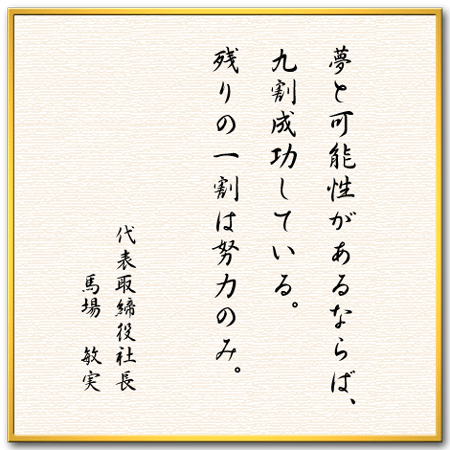 夢と可能性があるならば、
九割成功している。
残りの一割は努力のみ。
代表取締役社長
馬場 敏実